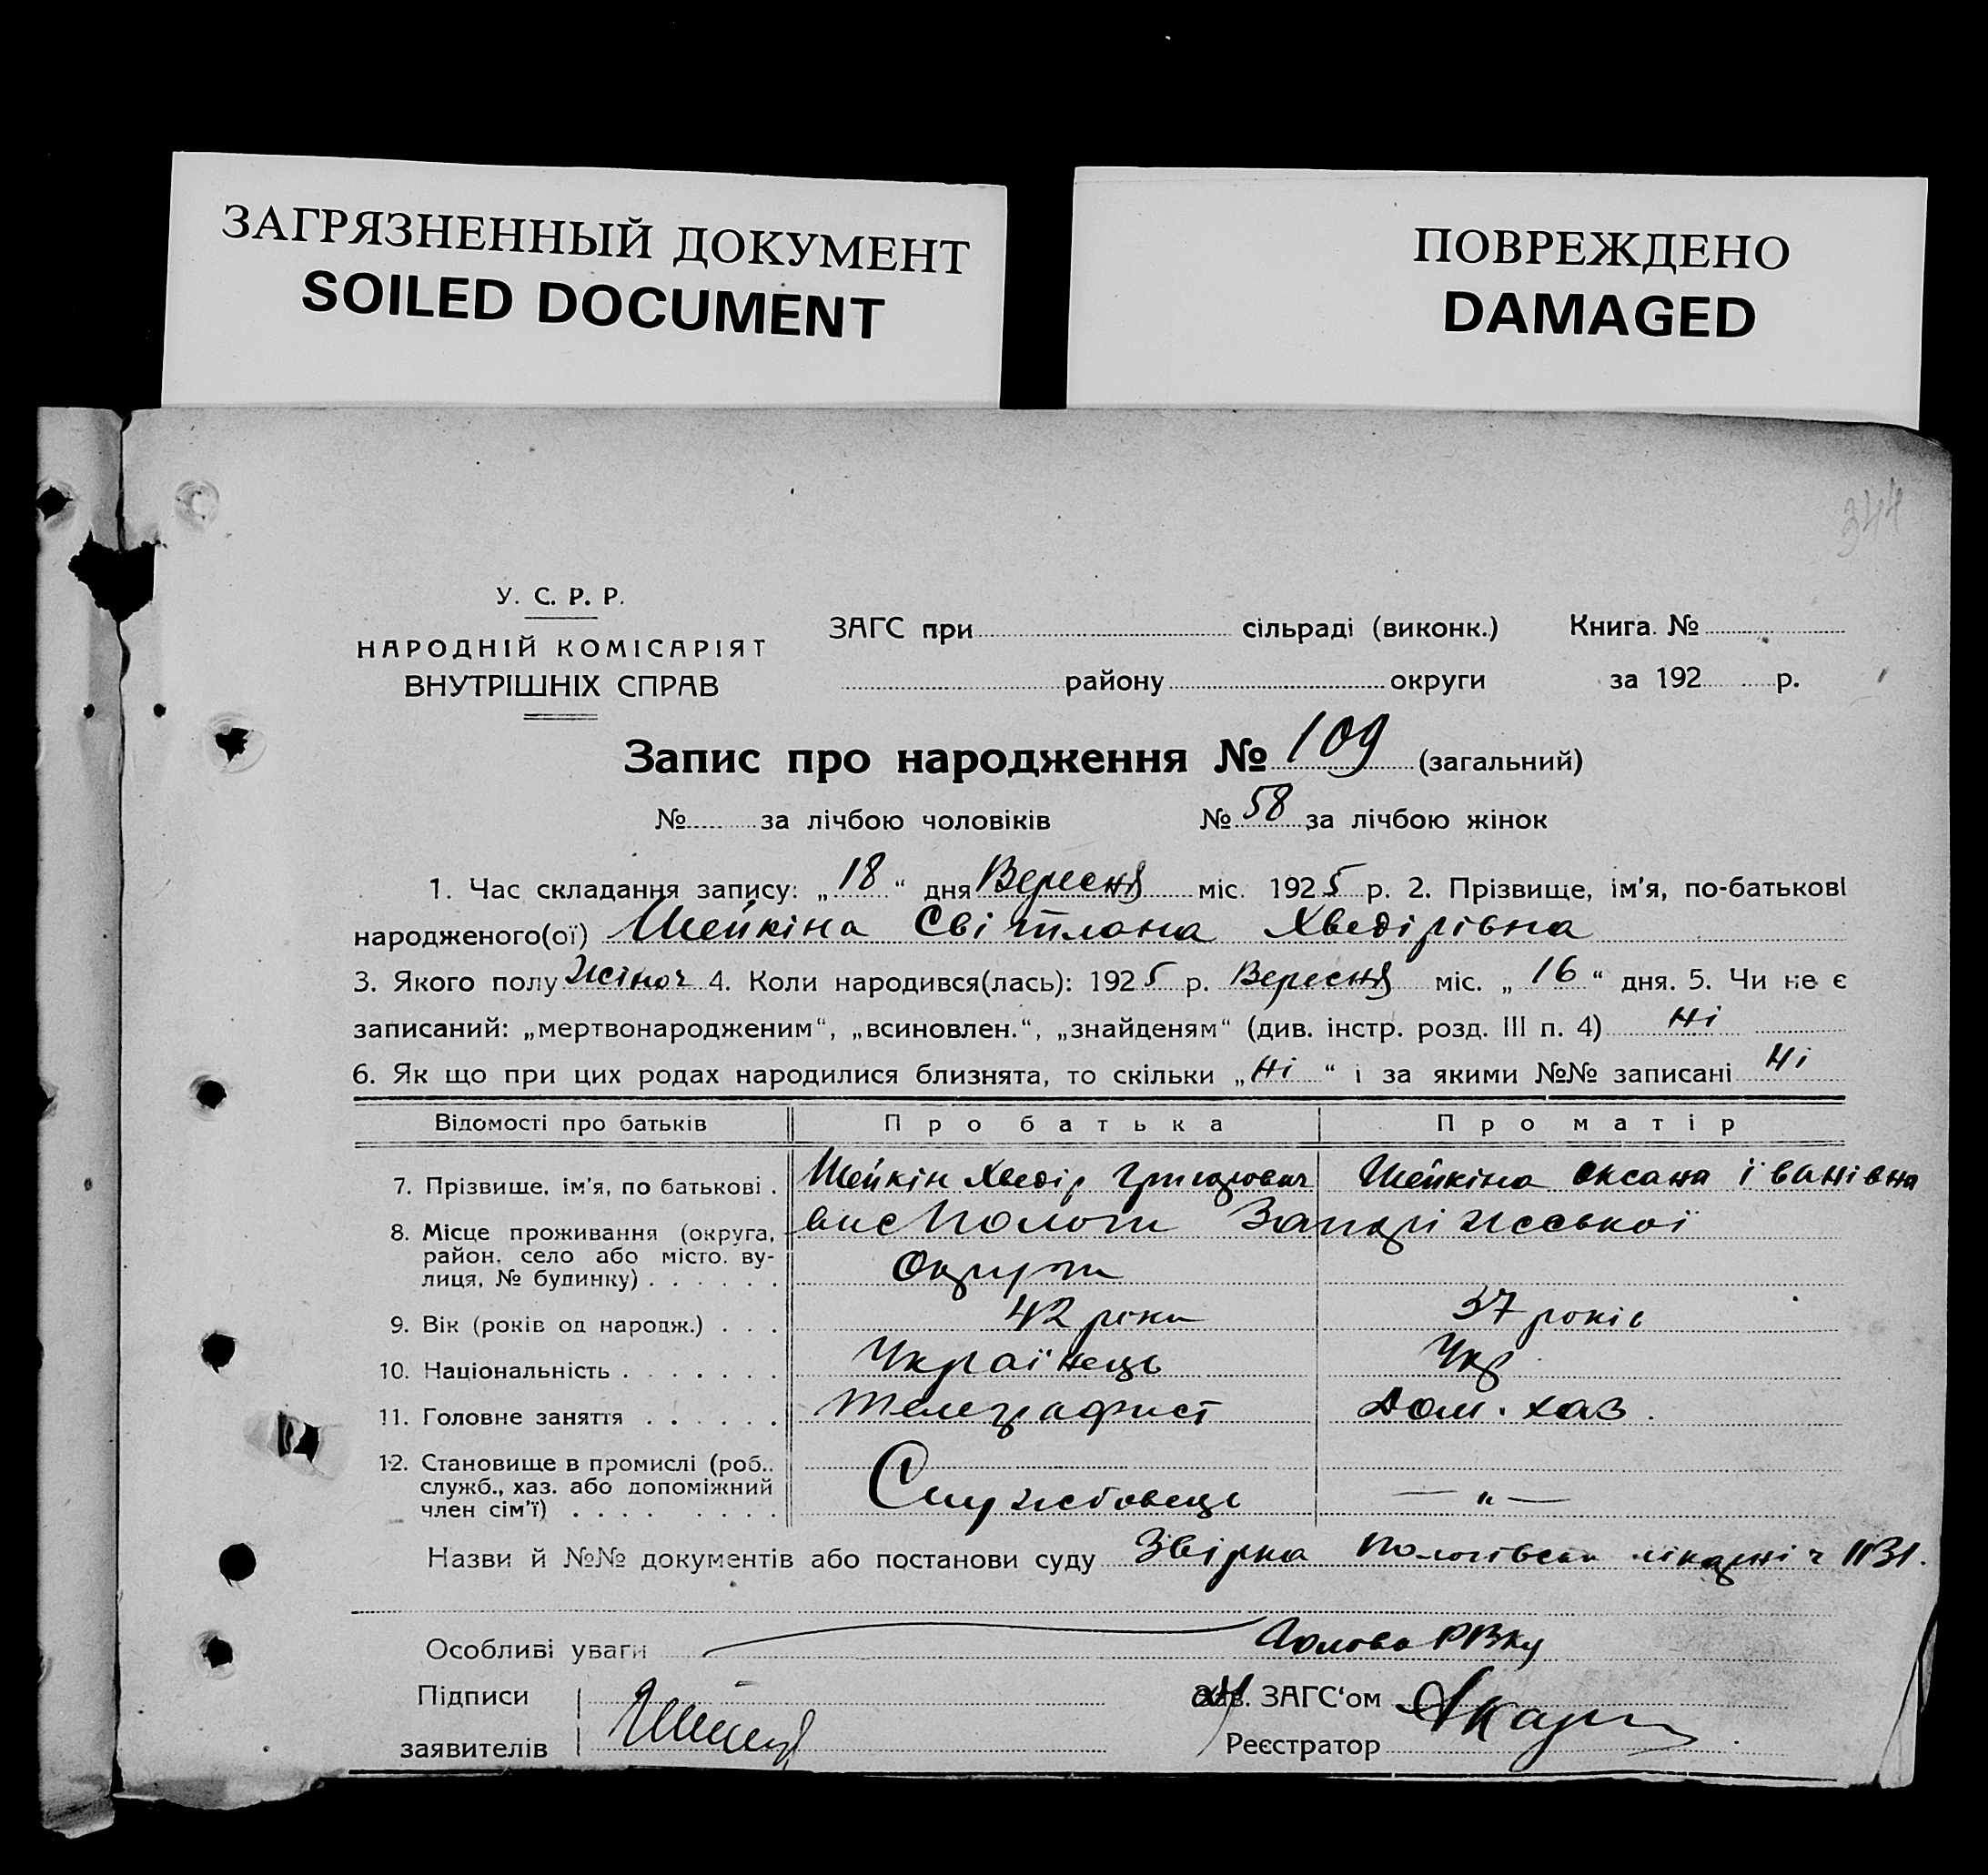 ЗАГРЯЗНЕННЫЙ ДОКУМЕНТ
SOILED DOCUMENT
ПОВРЕЖДЕНО
DAMAGED
344
У. С. Р. Р.
НАРОДНІЙ КОМІСАРІЯТ
ВНУТРІШНІХ СПРАВ
ЗАГС при сільраді (виконк.) Книга №
району округи за 192 р.
Запис про народження № 109 (загальний)
№ за лічбою чоловіків № 58 за лічбою жінок
1. Час складання запису: „18“ дня Вересня міс. 1925 р. 2. Прізвище, ім'я, по-батькові
народженого(ої) Шейкіна Світлана Хведірівна
3. Якого полу Жіноч 4. Коли народився(лась): 1925 р. Вересня міс. „16“ дня. 5. Чи не є
записаний: „мертвонародженим“, „всиновлен.“, „знайденям“ (див. інстр. розд. III п. 4) Ні
6. Як що при цих родах народилися близнята, то скільки „Ні“ і за якими №№ записані Ні
Відомості про батьків Про батька Про матір
7. Прізвище, ім'я, по батькові . Шейкін Хведір Григорович Шейкіна Оксана Іванівна
8. Місце проживання (округа, район, село або місто, вулиця, № будинку) . . . . . . вис Пологи Запоріжської
Округи
9. Вік (років од народж.) . . . 42 роки 37 років
10. Національність . . . . . . . Українець Укр
11. Головне заняття . . . . . Телеграфист Дом. хаз.
12. Становище в промислі (роб., служб., хаз. або допоміжний член сім'ї) . . . . . . . . Службовець — „ —
Назви й №№ документів або постанови суду Звірка Пологівськ лікарні ч 1131.
Особливі уваги Голова РВКу
Підписи Зав. ЗАГС'ом
заявителів Реєстратор